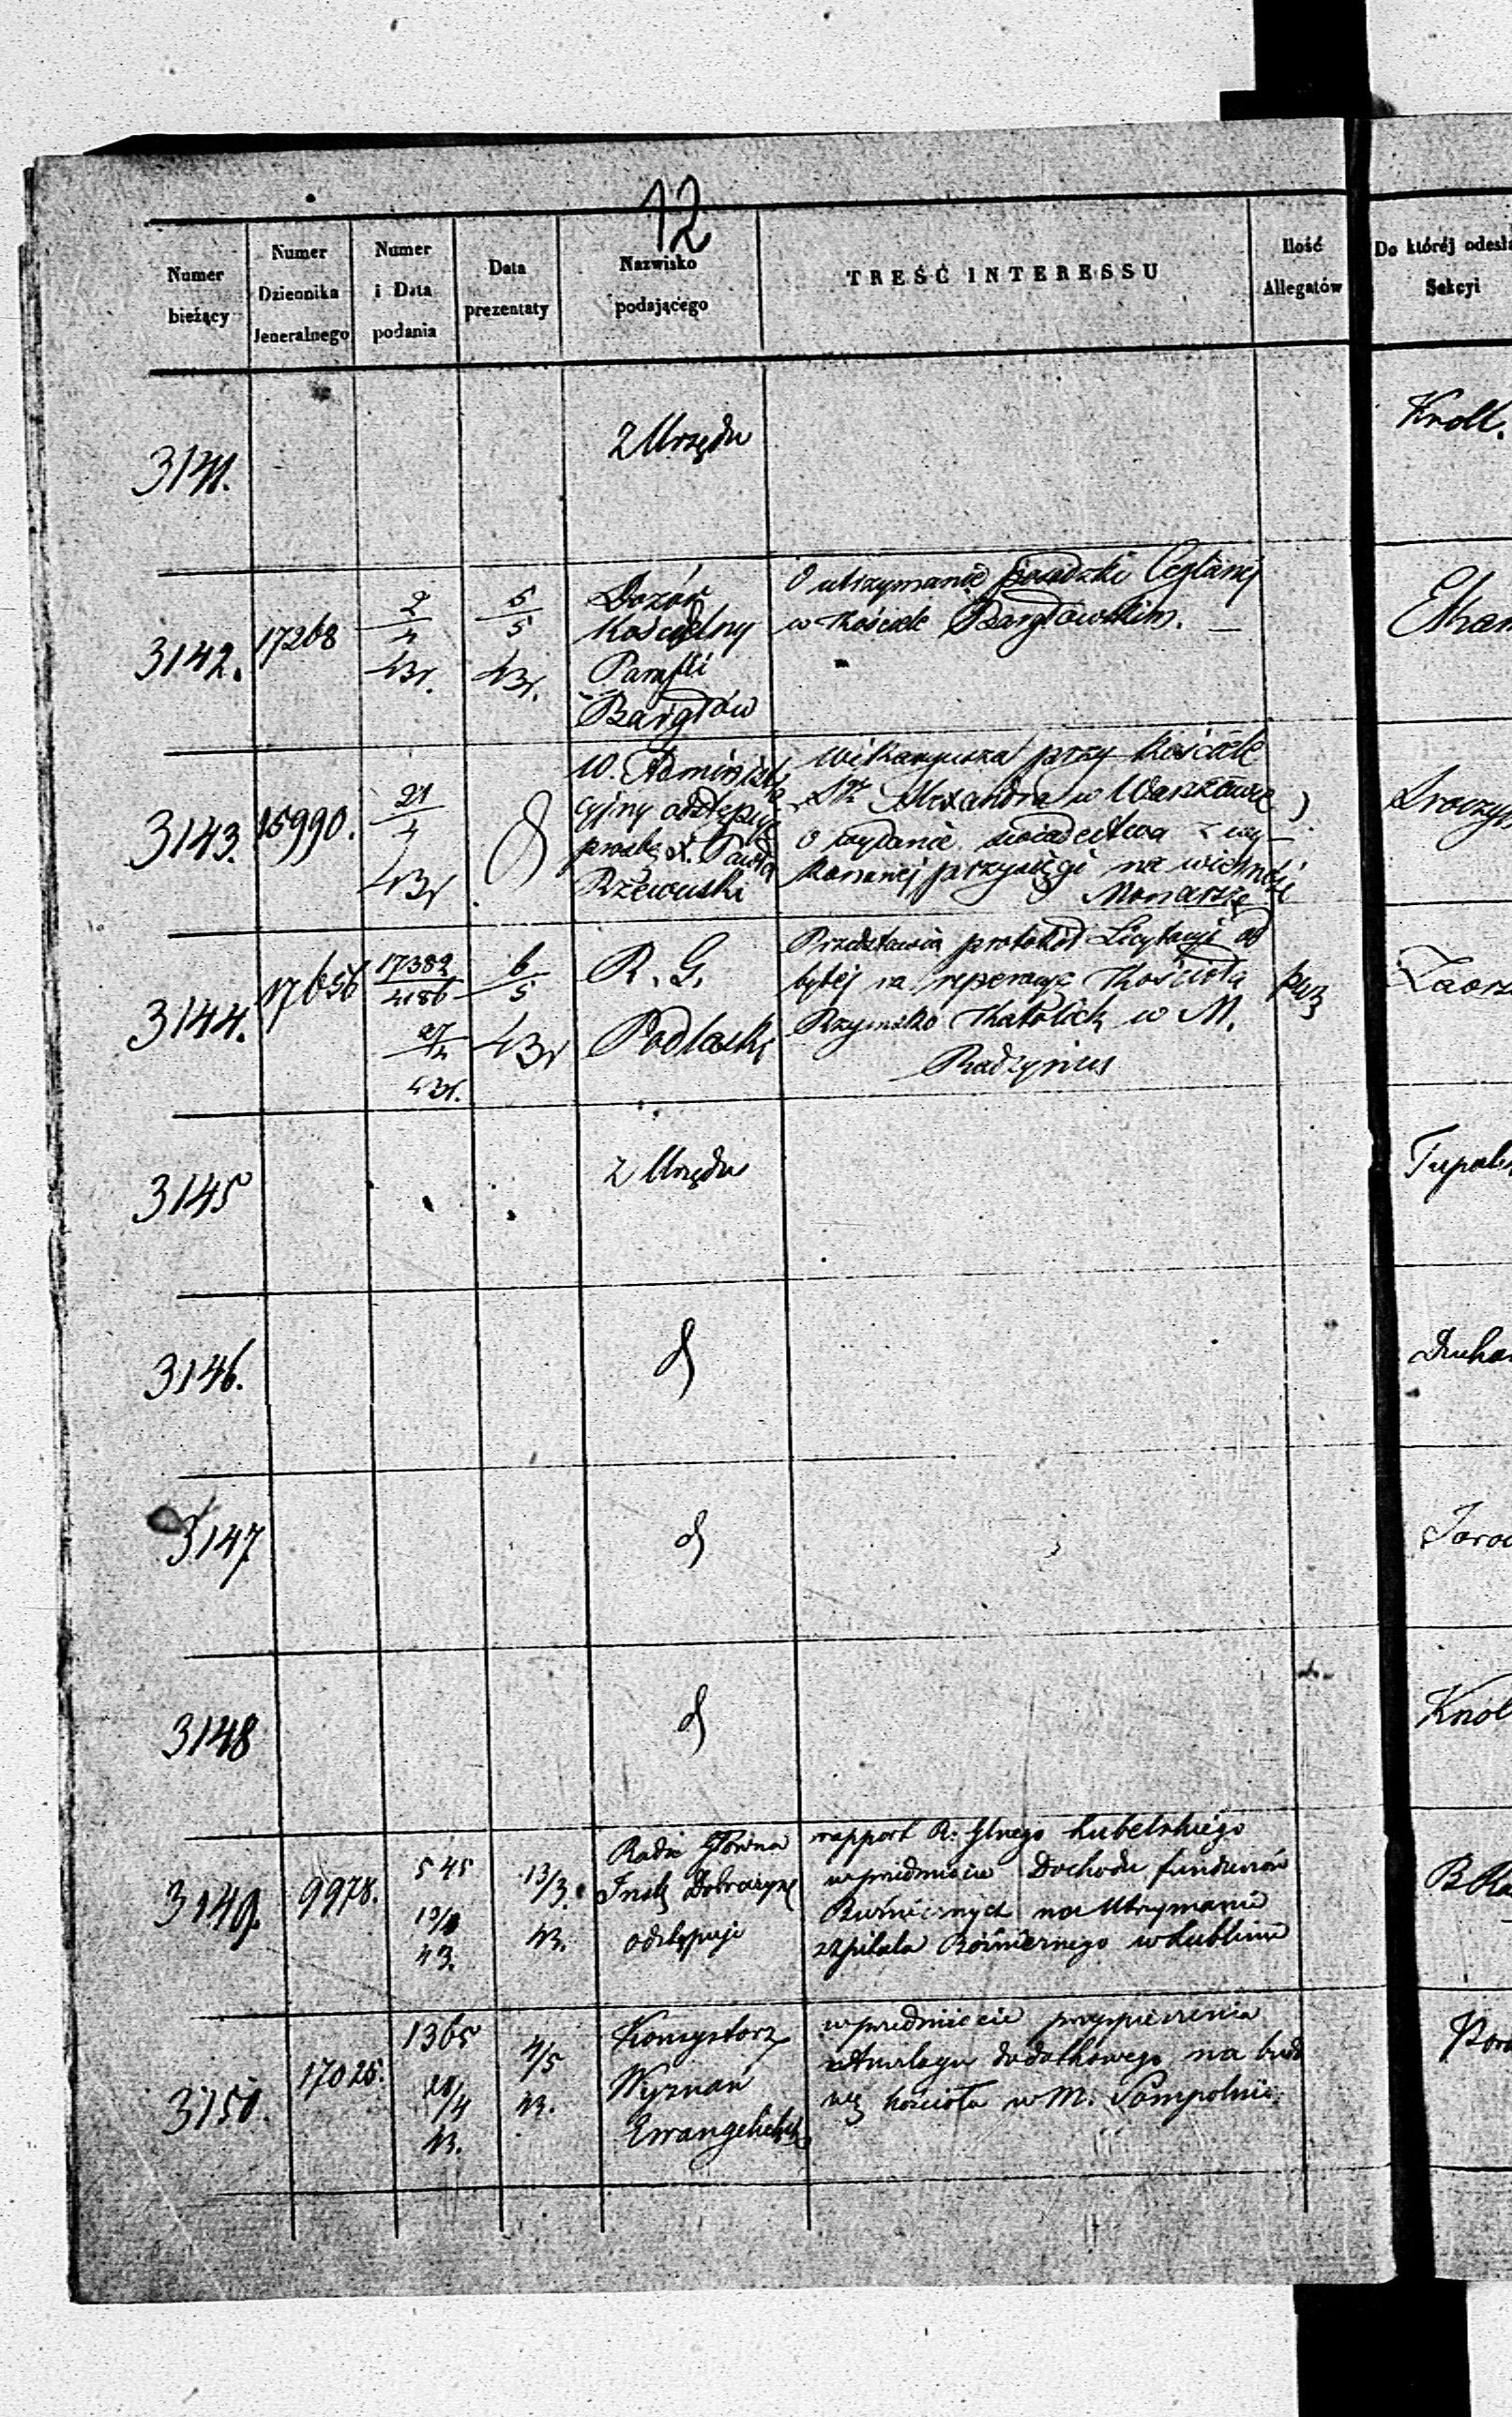 12
Numer bieżący
Numer Dziennika Jeneralnego
Numer i Data podania
Data prezentaty
Nazwisko podającego
TREŚĆ INTERESSU
Ilość Allegatów
Do któréj odesła
Sekcyi
3141.
z Urzędu
Kroll.
3142.
17268
2/4
43r.
5/5
43r.
Dozór
Kościelny
Parafii
Bargłów
O utrzymanie posadzki Ceglanej
w Kościele Bargłowskim. —
3143.
15990.
21/4
43r
W. Administra
cyjny odstępuje
prośbę X. Pawła
Rzewuski
Wikaryusza przy Kościele
Sgo Alexandra w Warszawie
o wydanie świadectwa z wy-
konanej przysięgi na wierność
Monarsze
3144.
17656
17382/4186
27/4
43r.
6/5
43r
R. G.
Podlaski
Przedstawia protokół Licytacyi od
bytej na reperacyę Kościoła
Rzymsko Katolick w M.
Radzyniu
3145
z Urzędu
3146.
d
3147
d
3148
d
3149.
9978.
545
13/3
43.
Rada Główna
Inst. Dobroczyn
odstępuje
rapport R. Głnego Lubelskiego
w przedmiocie Dochodu funduszów
Bużnicznych na Utrzymanie
szpitala Bóżnicznego w Lublinie
3150.
17025.
1365
28/4
43.
4/5
43.
Konsystorz
Wyznań
Ewangelickich
w przedmiocie przyspieszenia
dodatkowego na budo
wę kościoła w M. Sompolnie.